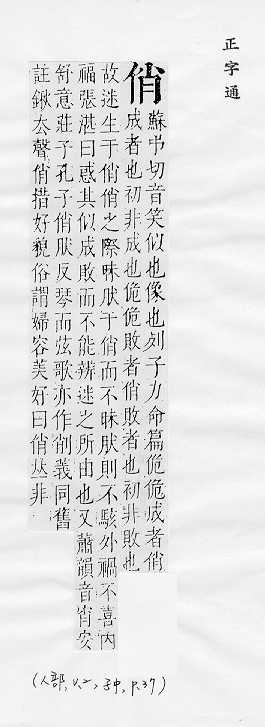 正字通
俏
蘇弔切音笑似也像也列子力命篇佹佹成者俏
成者也初非成也佹佹敗者俏敗者也初非敗也
故迷生于俏俏之際昧肰于俏而不昧肰則不駭外禍不喜內
福張湛曰惑其似成敗而不能辨迷之所由也又蕭韻音肖安
舒意莊子孔子俏肰反琴而弦歌亦作削義同舊
註鍬去聲俏措好貌俗謂婦容美好曰俏𠀤非
(人部, v.2, 子中, p.37)